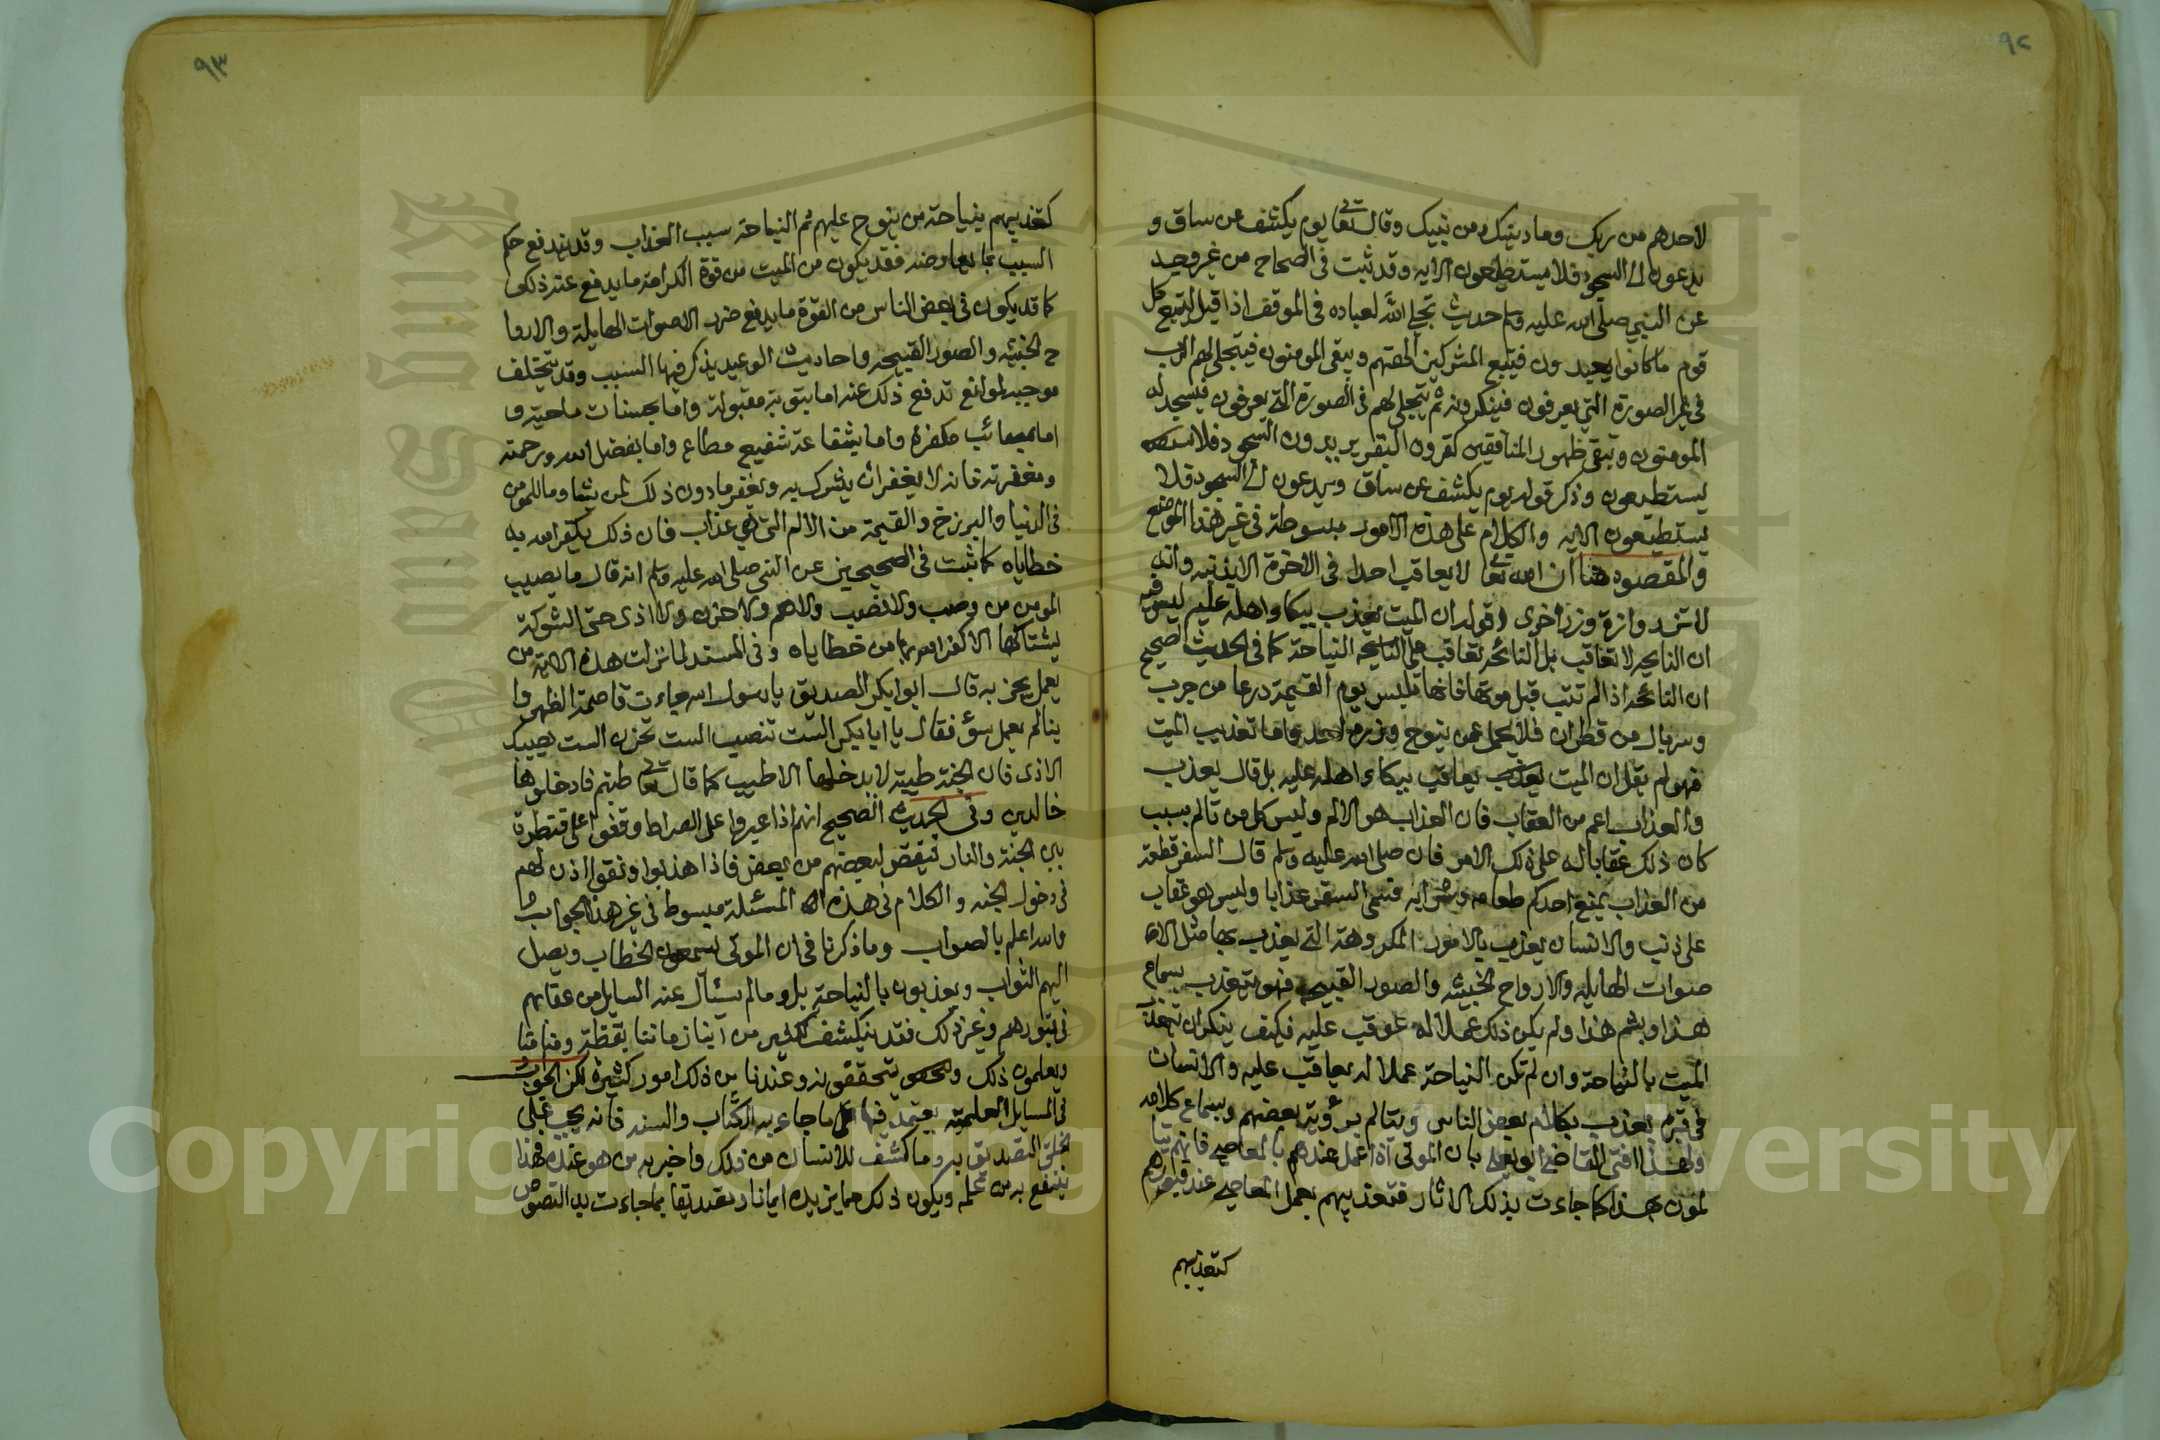 ٩٢
لاحدهم من ربك وما دينك ومن نبيك وقال تعالى يوم يكشف عن ساق و
يدعون الى السجود فلا يستطيعون الايه وقد ثبت فى الصحاح من غير وجه
عن النبي صلى الله عليه وسلم حديث تجلي الله لعباده فى الموقف اذا قيل ليتبع كل
قوم ما كانوا يعبدون فيتبع المشركين الهتهم ويبقى المومنون فيتجلى لهم الرب
فى غير الصورة التي يعرفون فينكرونه ثم يتجلى لهم فى الصورة التي يعرفون فيسجد له
المومنون وتبقى ظهور المنافقين كقرون البقر يريدون السجود فلا
يستطيعون وذكر قوله يوم يكشف عن ساق ويدعون الى السجود فلا
يستطيعون الايه والكلام على هذه الامور مبسوطة فى غير هذا الموضع
والمقصود هنا ان الله تعالى لا يعاقب احدا فى الاخرة الا بذنبه وانه
لا تزر وازرة وزر اخرى وقوله ان الميت يعذب ببكاء اهله عليه ليس فيه
ان النايحه لا تعاقب بل النائحه تعاقب على النياحة كما فى الحديث الصحيح
ان النائحه اذا لم تتب قبل موتها فانها تلبس يوم القيمة درعا من جرب
وسربال من قطران فلا يحمل عمن ينوح وزره احد واما تعذيب الميت
فهو لم يقل ان الميت يعاقب ببكاء اهله عليه بل قال يعذب
والعذاب اعم من العقاب فان العذاب هو الالم وليس كل من تالم بسبب
كان ذلك عقابا له على ذلك الامر فان صلى الله عليه وسلم قال السفر قطعة
من العذاب يمنع احدكم طعامه وشرابه فسمى السفر عذابا وليس هو عقاب
على ذنب والانسان يعذب بالامور المكروهة التي يعذب بها مثل الا
صوات الهايله والارواح الخبيثه والصور القبيحه فهو يتعذب بسماع
هذا وبشم هذا ولم يكن ذلك عملا له عوقب عليه فكيف ينكر ان يتعذب
الميت بالنياحة وان لم تكن النياحة عملا له يعاقب عليه والانسان
فى قبره يعذب بكلام بعض الناس ويتالم برؤية بعضهم وبسماع كلامه
ولهذا افتى القاضي ابو يعلى بان الموتى اذا عمل عندهم بالمعاصي فانهم يتا
لمون بهذا كما جاءت بذلك الاثار فتعذيبهم بعمل المعاصي عند قبورهم
كتعذيبهم
٩٣
كتعذيبهم بنياحة من ينوح عليهم ثم النياحة سبب العذاب وقد يندفع حكم
السبب بما يعارضه فقد يكون من الميت من قوة الكرامة ما يدفع عنه ذلك
كما قد يكون فى بعض الناس من القوة ما يدفع ضرر الاصوات الهايلة والاروا
ح الخبيثه والصور القبيحه واحاديث الوعيد يذكر فيها السبب وقد يتخلف
موجبه لموانع تدفع ذلك عنه اما بتوبة مقبولة واما بحسنات ماحية و
اما بمصائب مكفرة واما بشفاعة شفيع مطاع واما بفضل الله ورحمته
ومغفرته فانه لا يغفر ان يشرك به ويغفر ما دون ذلك لمن يشا وما للمومن
فى الدنيا والبرزخ والقيمة من الالم التي هي عذاب فان ذلك يكفر الله به
خطاياه كما ثبت فى الصحيحين عن النبي صلى الله عليه وسلم انه قال ما يصيب
المومن من وصب ولا نصب ولا هم ولا حزن ولا اذى حتى الشوكة
يشتاكها الا كفر الله بها من خطاياه وفى المسند لما نزلت هذه الاية من
يعمل سؤ يجز به قال ابوا بكر الصديق يا رسول الله جاءت قاصمة الظهر وا
ينا لم يعمل سؤ فقال يا ابا بكر الست تنصب الست تحزن الست يصيبك
الاذى فان الجنة طيبة لا يدخلها الا طيب كما قال تعالى طبتم فادخلوها
خالدين وفى الحديث الصحيح انهم اذا عبروا على الصراط وقفوا على قنطرة
بين الجنة والنار فيقتص لبعضهم من بعض فاذا هذبوا ونقوا اذن لهم
فى دخول الجنه والكلام فى هذه المسئلة مبسوط فى غير هذا الجواب
والله اعلم بالصواب وما ذكرنا فى ان الموتى يسمعون الخطاب ويصل
اليهم الثواب ويعذبون بالنياحة بل وما لم يسئال عنه السايل من عقابهم
فى قبورهم وغير ذلك فقد ينكشف لكثير من ابنا زماننا يقظة ومناما
ويعلمون ذلك ويتحققونه وعندنا من ذلك امور كثيرة لكن الجواب
فى المسايل العلمية يعتمد فيها على ما جاء به الكتاب والسنه فانه يجب على
الخلق التصديق به وما كشف للانسان من ذلك واخبر به من هو عنده فهذا
ينتفع به من علمه ويكون ذلك مما يزيده ايمانا وتصديقا بما جاءت به النصوص
Copyright © King Saud University